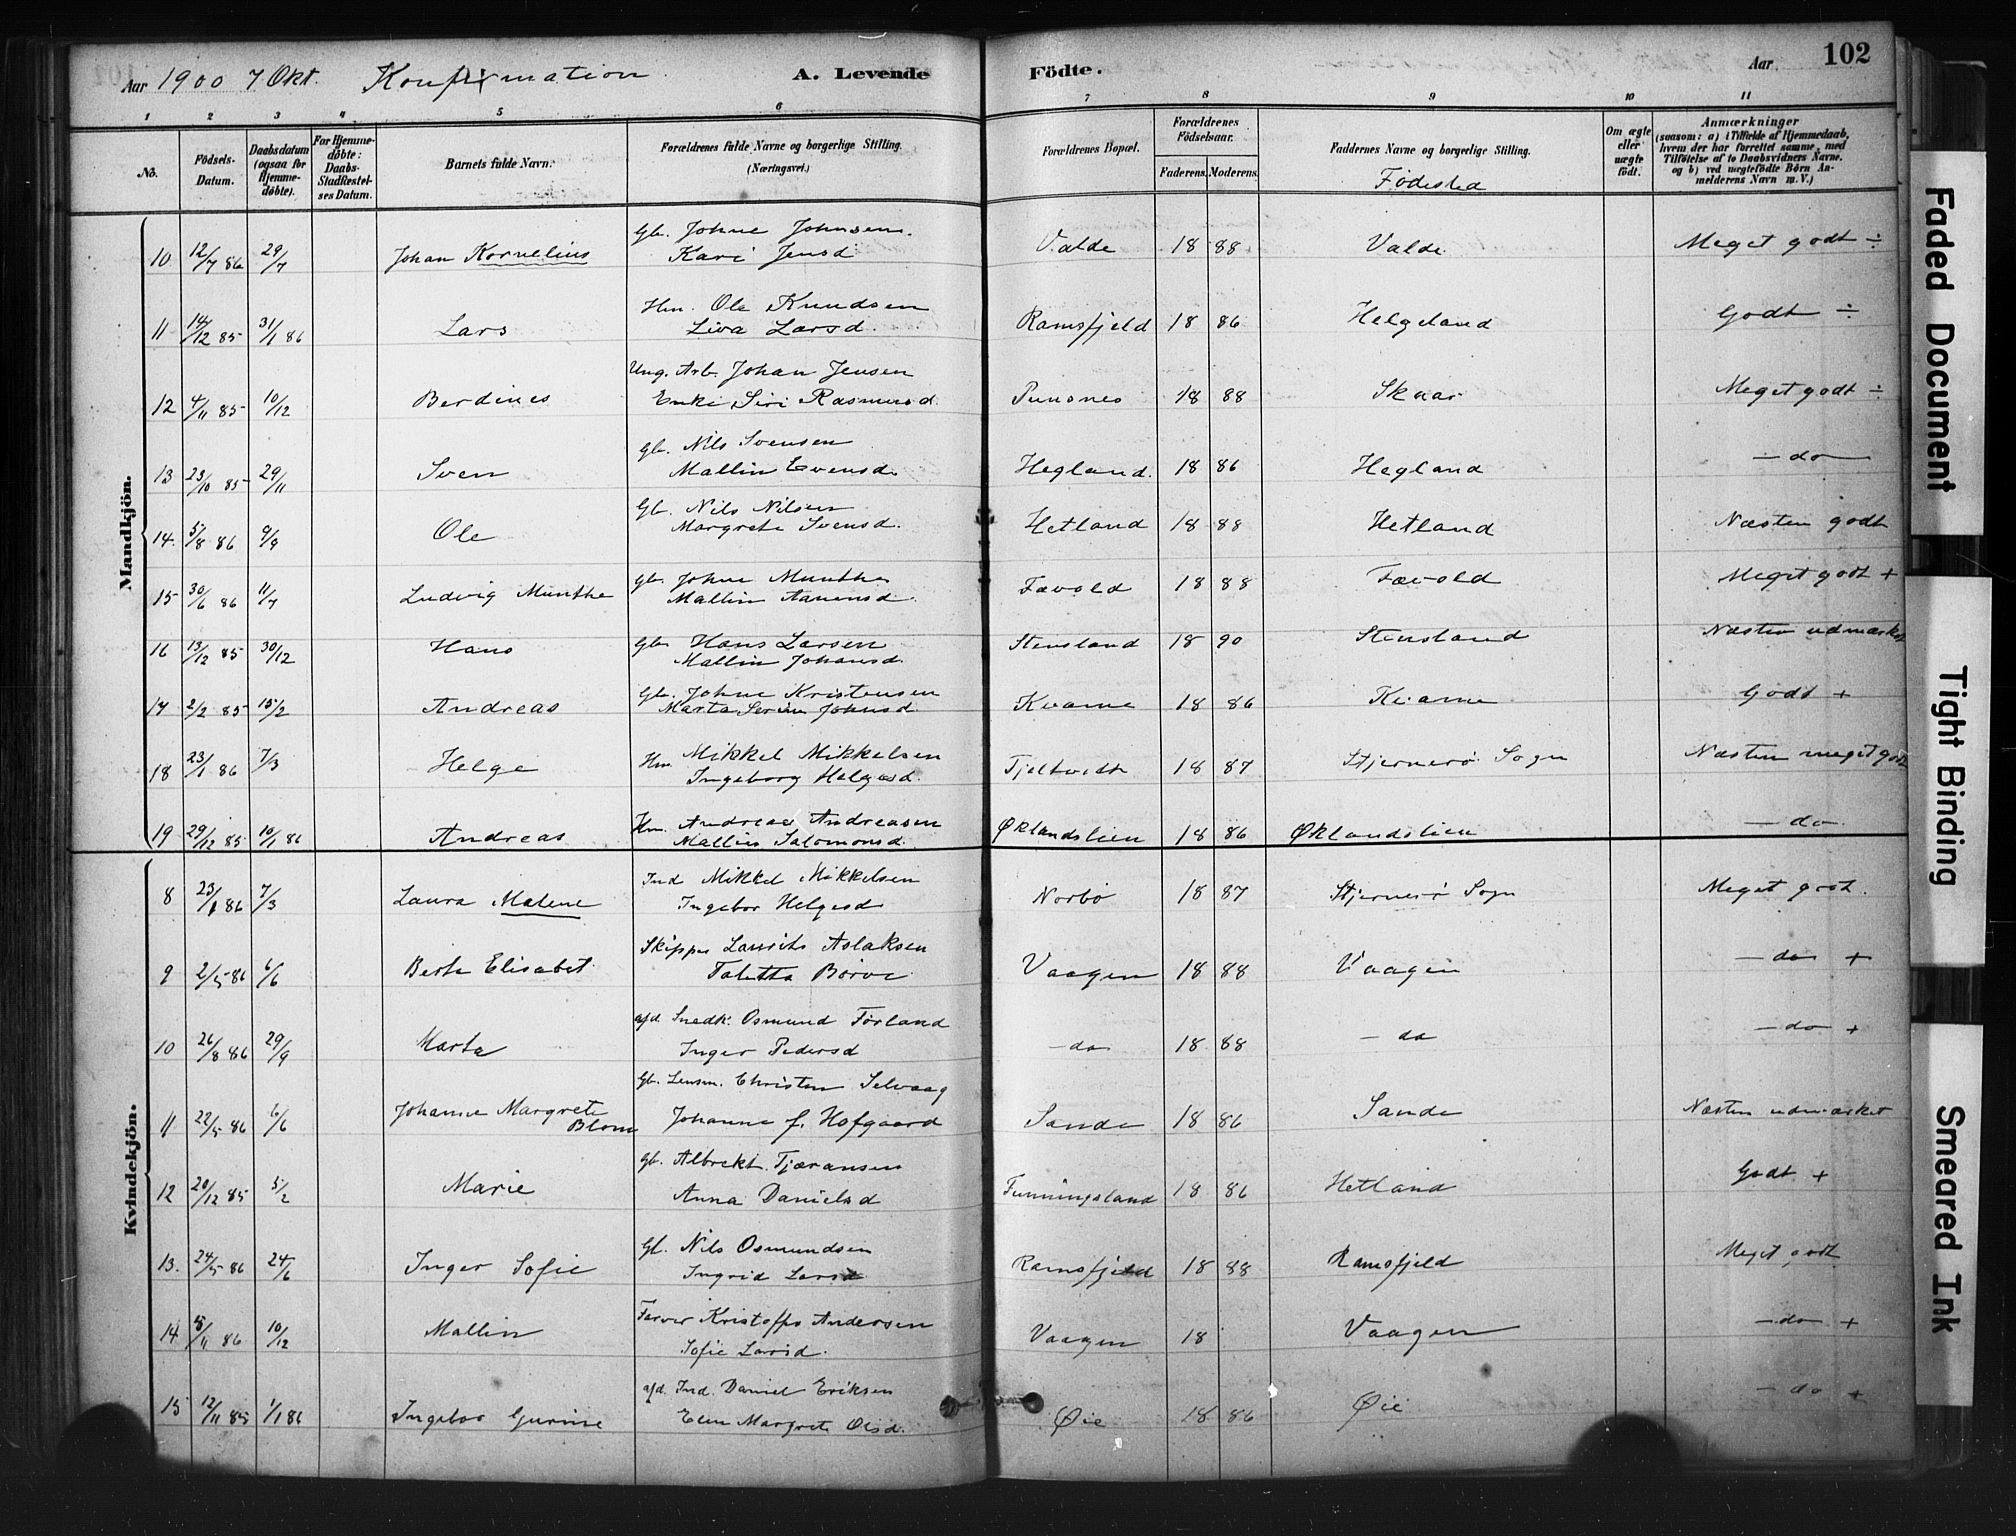 Aar 1900 7 Okt. Konfirmation A. Levende Födte. Aar 102
1 2 3 4 5 6 7 8 9 10 11
No.
Födsels-Datum.
Daabsdatum (ogsaa for Hjemmedöbte).
For Hjemmedöbte: Daabs-Stadfæstelses Datum.
Barnets fulde Navn.
Forældrenes fulde Navne og borgerlige Stilling. (Næringsvei.)
Forældrenes Bopæl.
Forældrenes Födselsaar.
Faderens. Moderens.
Faddernes Navne og borgerlige Stilling.
Födested
Om ægte eller uægte födt.
Anmærkninger (saasom: a) i Tilfælde af Hjemmedaab, hvem der har forrettet samme, med Tilföielse af to Daabsvidners Navne, og b) ved uægtefödte Börn Anmelderens Navn m. V.)
Mandkjön.
10 12/7 86 29/7 Johan Kornelius Gb. Johne Johnsen. Kari Jensd Valde 18 88 Valde Meget godt ÷
11 14/12 85 31/1 86 Lars Hm. Ole Knudsen Liva Larsd. Ramsfjeld 18 86 Helgeland Godt ÷
12 4/11 85 10/12 Berdines Ung. Arb. Johan Jensen Enke Siri Rasmusd. 18 88 Skaar Meget godt ÷
13 23/10 85 29/11 Sven Gb. Nils Svensen Mallin Evensd. Hegland. 18 86 Hegland - do -
14. 5/8 86 9/9 Ole Gb. Nils Nilsen Margrete Svensd. Hetland 18 88 Hetland Næsten godt
15 30/6 86 11/7 Ludvig Munthe Gb. Johne Munthe Mallin Aanensd. Fævold 18 88 Fævold Meget godt +
16 13/12 85 30/12 Hans Gb. Hans Larsen Mallin Johansd. Stensland 18 90 Stensland Næsten udmærket
17 2/2 85 15/2 Andreas Gb. Johne Kristensen Marta Serine Johnsd. Kvame 18 86 Kvame Godt +
18 23/1 86 7/3 Helge Hm. Mikkel Mikkelsen Ingeborg Helgesd. Tjeltvedt 18 87 Stjernerö Sogn Næsten meget godt
19 29/12 85 10/1 86 Andreas Hm. Andreas Andreasen Mallin Salomonsd. Øklandslien 18 86 Øklandslien - do.
Kvindekjön.
8 23/1 86 7/3 Laura Malene Ind Mikkel Mikkelsen Ingebor Helgesd Norbö 18 87 Stjernerö Sogn Meget godt.
9 2/5 86 6/6 Berte Elisabet Skipper Laurits Aslaksen Taletta Børve Vaagen 18 88 Vaagen - do +
10 26/8 86 29/9 Marta afd. Snedk. Osmund Førland Inger Pedersd - do 18 88 - do - do +
11 22/5 86 6/6 Johanne Margrete Blom Gb. Lensm. Christen Selvaag Johanne f. Hofgaard Sande 18 86 Sande Næsten udmærket
12 20/12 85 5/2 Marie Gb. Albrekt Tjæransen Anna Danielsd Funningsland 18 86 Hetland Godt +
13. 24/5 86 24/6 Inger Sofie Gb. Nils Osmundsen Ingrid Larsd Ramsfjeld 18 88 Ramsfjeld Meget godt
14 5/11 86 10/12 Mallin Farver Kristoffer Andersen Sofie Larsd. Vaagen 18 Vaagen - do +
15 12/11 85 1/1 86 Ingebor Gurine afd. Ind. Daniel Eriksen Elen Margrete Olsd. Øie 18 86 Øie - do +
Faded Document
Tight Binding
Smeared Ink